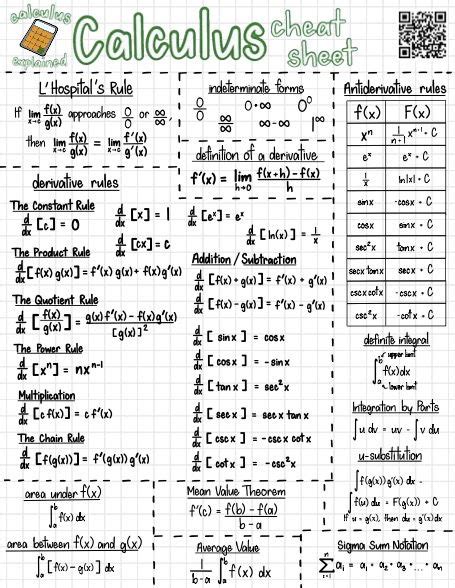 calculus
explained
Calculus cheat sheet
L'Hospital's Rule
If lim x→c f(x)/g(x) approaches 0/0 or ∞/∞,
then lim x→c f(x)/g(x) = lim x→c f'(x)/g'(x)
indeterminate forms
0/0 0·∞ 0⁰
∞/∞ ∞-∞ 1^∞
definition of a derivative
f'(x) = lim h→0 f(x+h) - f(x) / h
Antiderivative rules
f(x) F(x)
xⁿ 1/(n+1) xⁿ⁺¹ + C
eˣ eˣ + C
1/x ln|x| + C
sinx -cosx + C
cosx sinx + C
sec²x tanx + C
secx tanx secx + C
cscx cotx -cscx + C
csc²x -cotx + C
derivative rules
The Constant Rule
d/dx [c] = 0
d/dx [x] = 1
d/dx [cx] = c
d/dx [eˣ] = eˣ
d/dx [ln(x)] = 1/x
The Product Rule
d/dx [f(x) g(x)] = f'(x) g(x) + f(x) g'(x)
The Quotient Rule
d/dx [f(x)/g(x)] = g(x) f'(x) - f(x) g'(x) / [g(x)]²
The Power Rule
d/dx [xⁿ] = nxⁿ⁻¹
Multiplication
d/dx [c f(x)] = c f'(x)
The Chain Rule
d/dx [f(g(x))] = f'(g(x)) g'(x)
Addition / Subtraction
d/dx [f(x) + g(x)] = f'(x) + g'(x)
d/dx [f(x) - g(x)] = f'(x) - g'(x)
d/dx [sinx] = cosx
d/dx [cosx] = -sinx
d/dx [tanx] = sec²x
d/dx [secx] = secx tanx
d/dx [cscx] = -cscx cotx
d/dx [cotx] = -csc²x
definite integral
∫ₐᵇ f(x)dx
upper limit
lower limit
Integration by Parts
∫u dv = uv - ∫v du
u-substitution
∫f(g(x)) g'(x) dx =
∫f(u) du = F(g(x)) + C
If u = g(x), then du = g'(x)dx
area under f(x)
∫ₐᵇ f(x) dx
area between f(x) and g(x)
∫ₐᵇ [f(x) - g(x)] dx
Mean Value Theorem
f'(c) = f(b) - f(a) / b - a
Average Value
1/(b-a) ∫ₐᵇ f(x) dx
Sigma Sum Notation
n
∑ aᵢ = a₁ + a₂ + a₃ + ... + aₙ
i=1